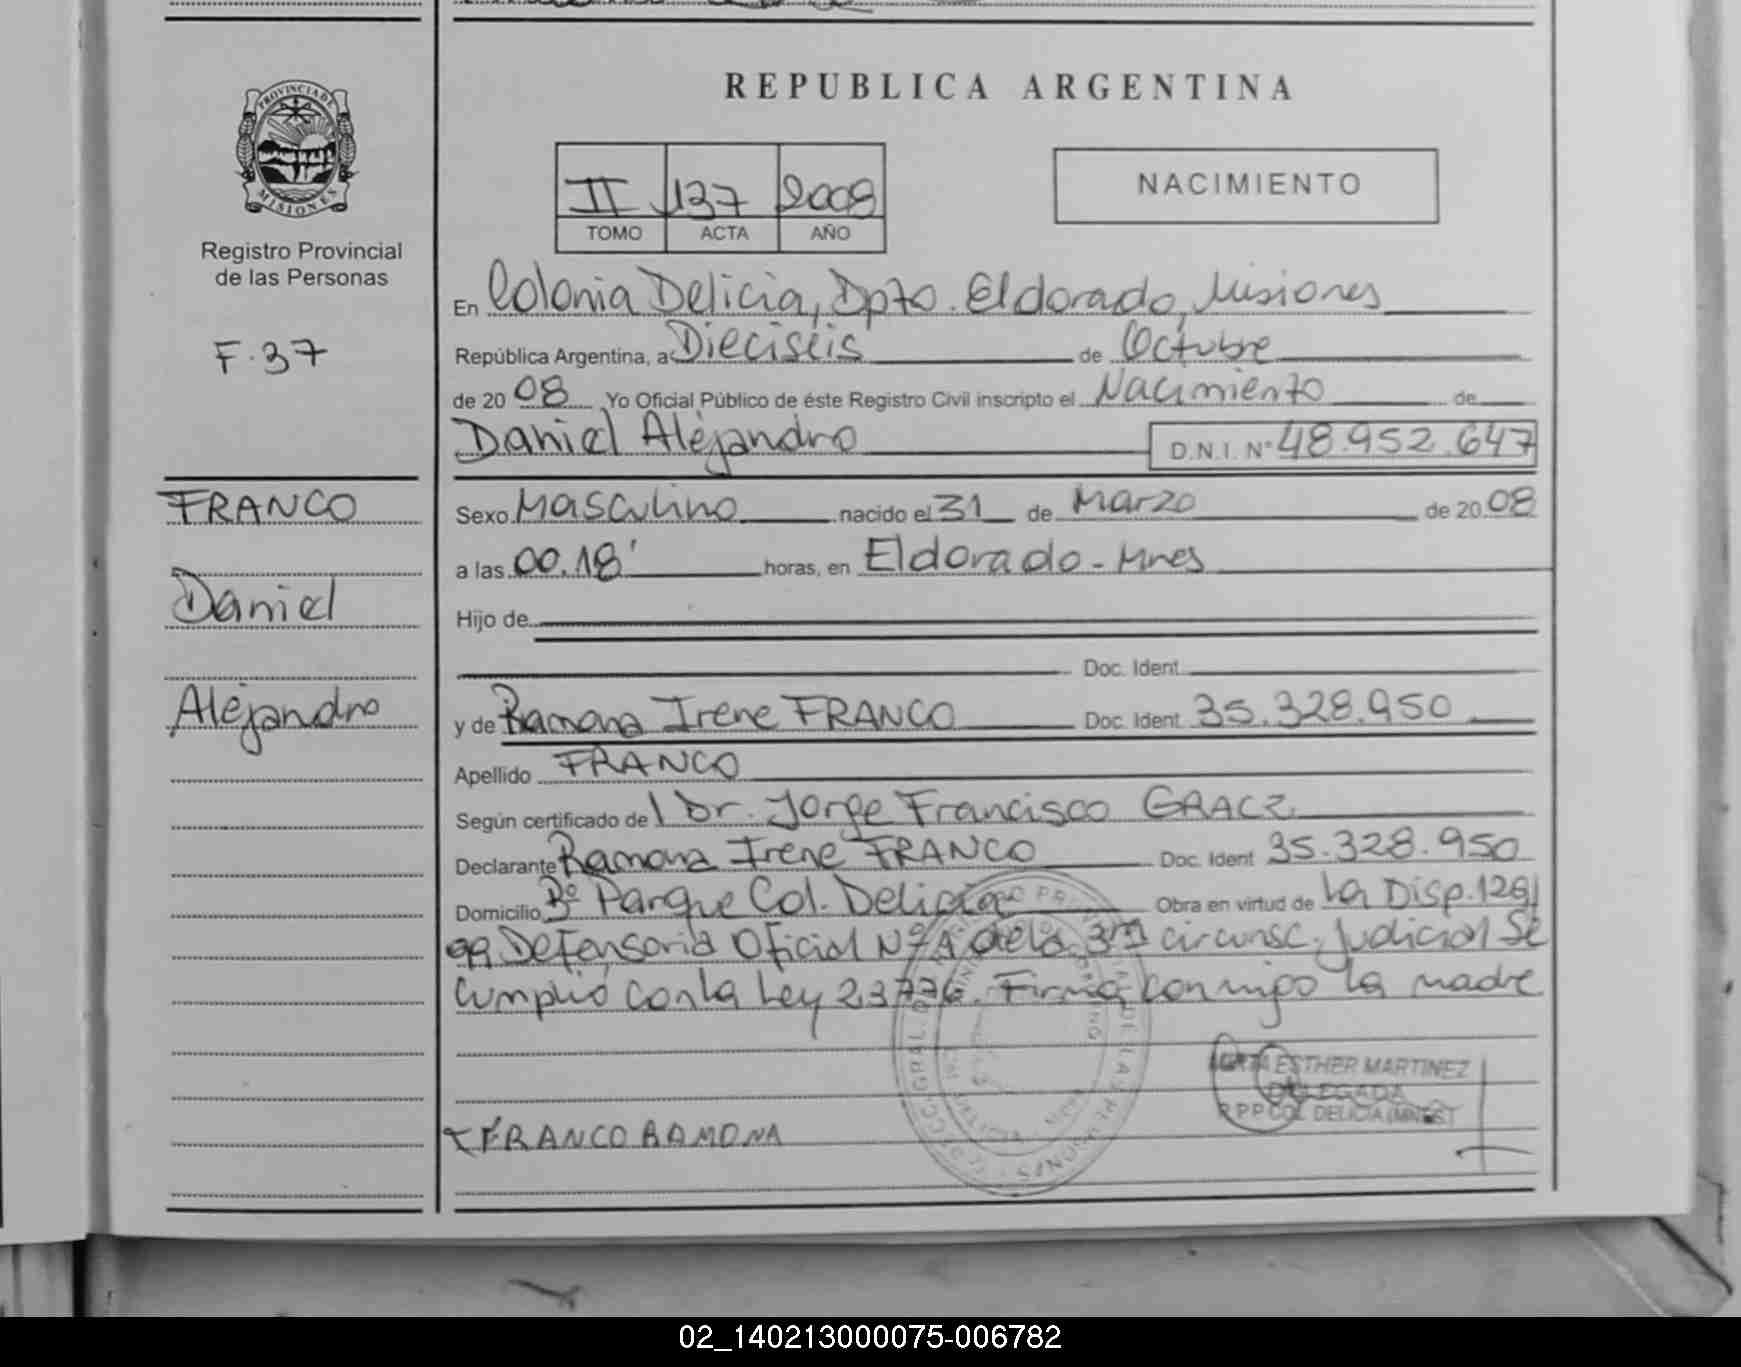 REPUBLICA ARGENTINA
PROVINCIA DE
MISIONES
Registro Provincial
de las Personas
F.37
II 137 2008
TOMO ACTA AÑO
NACIMIENTO
En Colonia Delicia, Dpto. Eldorado, Misiones
República Argentina, a Dieciséis de Octubre
de 20 08 Yo Oficial Público de éste Registro Civil inscripto el Nacimiento de
Daniel Alejandro D.N.I. Nº 48.952.647
FRANCO
Daniel
Alejandro
Sexo Masculino nacido el 31 de Marzo de 20 08
a las 00.18' horas, en Eldorado - Mnes
Hijo de
Doc. Ident.
y de Ramona Irene FRANCO Doc. Ident. 35.328.950
Apellido FRANCO
Según certificado de l Dr. Jorge Francisco GRACZ
Declarante Ramona Irene FRANCO Doc. Ident 35.328.950
Domicilio Bº Parque Col. Delicia Obra en virtud de la Disp. 128/
99 Defensoria Oficial Nº 1 de la 3ra circunsc. Judicial Se
Cumplió con la Ley 23776. Firma conmigo la madre
ESTHER MARTINEZ
DELEGADA
R.P.P COL DELICIA (MNES)
FRANCO RAMONA
02_140213000075-006782